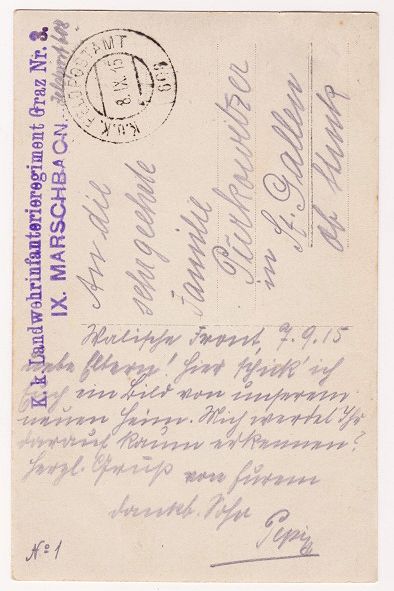 K.k. Landwehrinfanterieregiment Graz Nr. 3.
IX. MARSCHBAON.
Feldpost 608
K.u.K. FELDPOSTAMT
8. IX. 15
609
An die
sehrgeehrte
Familie
Purkowitzer
in St. Gallen
ob Hunk
Walische Front, 7.9.15
Liebe Eltern! Hier schick' ich
Euch ein Bild von unserem
neuen Heim. Mich werdet Ihr
darauf kaum erkennen?
Herzl. Gruß von Eurem
dankb. Sohn
Pepi
No 1